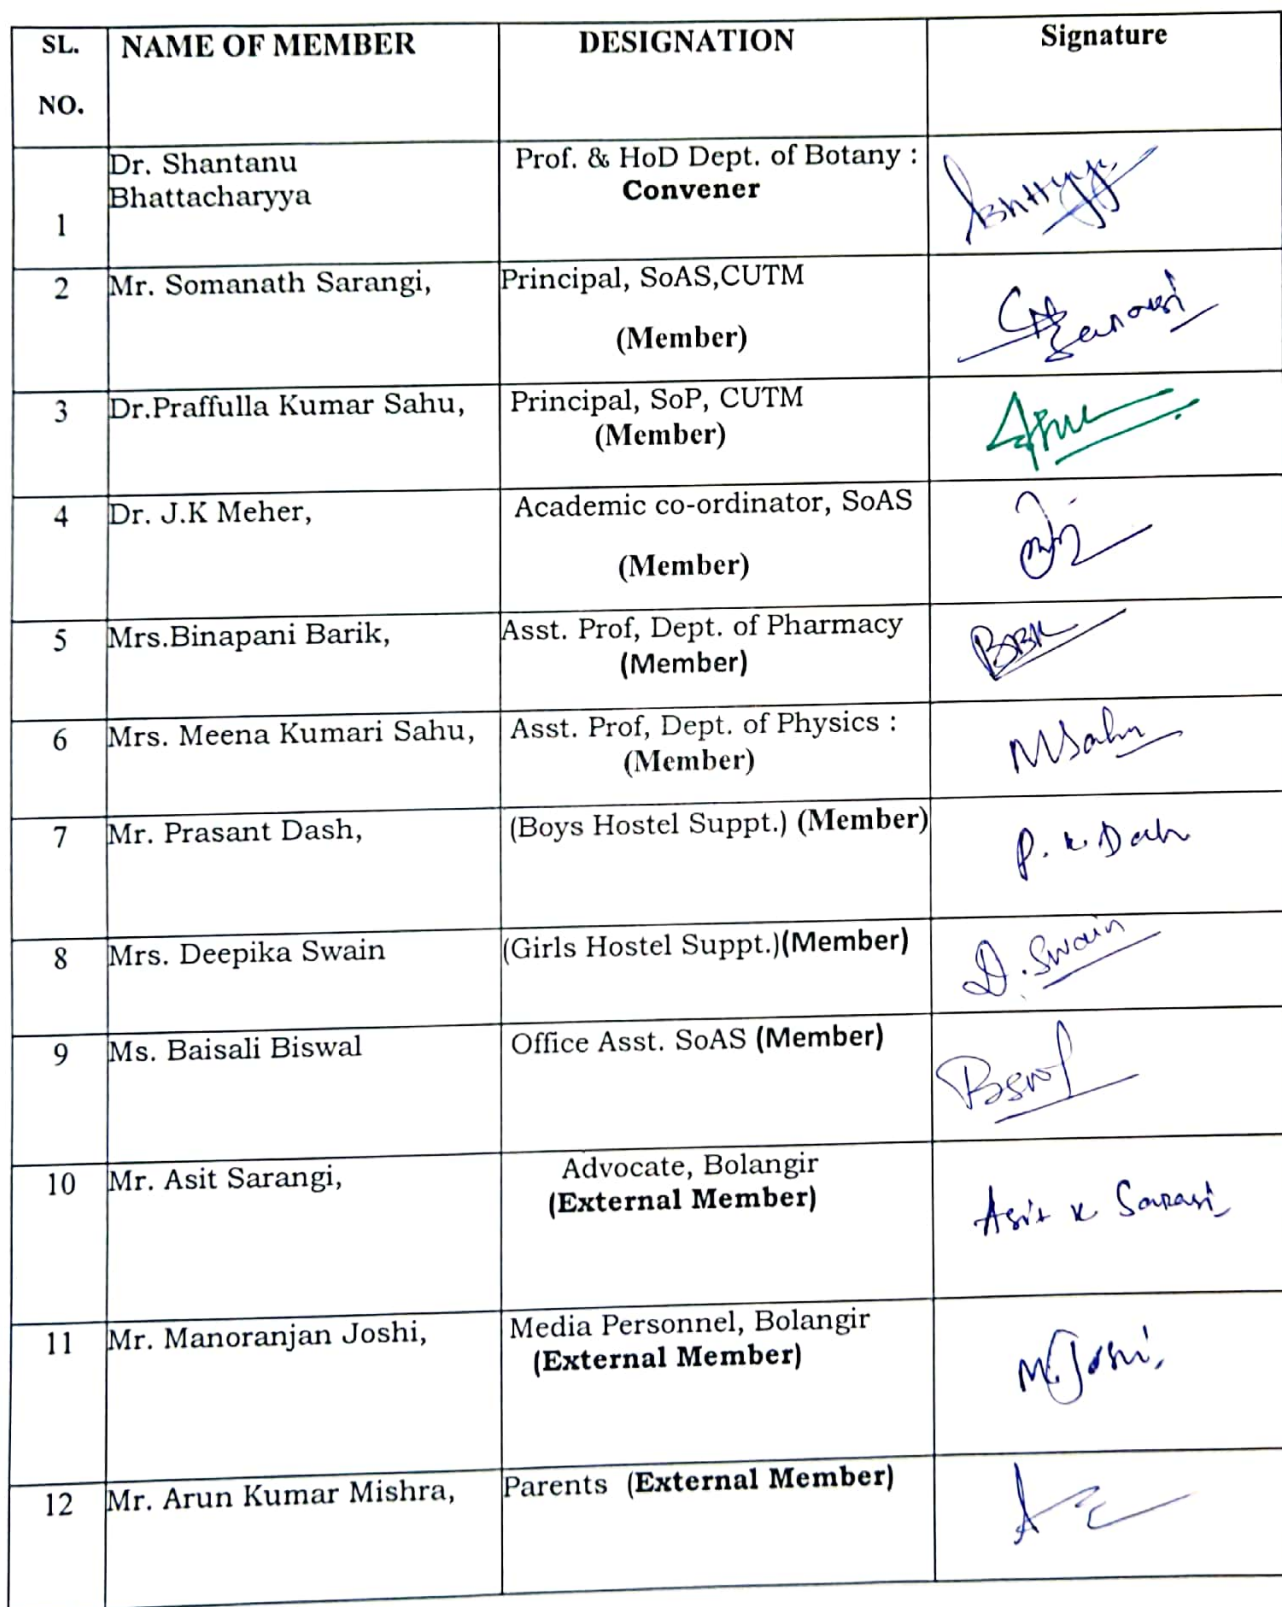 SL. NO.
NAME OF MEMBER
DESIGNATION
Signature
1
Dr. Shantanu
Bhattacharyya
Prof. & HoD Dept. of Botany :
Convener
2
Mr. Somanath Sarangi,
Principal, SoAS,CUTM
(Member)
3
Dr.Praffulla Kumar Sahu,
Principal, SoP, CUTM
(Member)
4
Dr. J.K Meher,
Academic co-ordinator, SoAS
(Member)
5
Mrs.Binapani Barik,
Asst. Prof, Dept. of Pharmacy
(Member)
6
Mrs. Meena Kumari Sahu,
Asst. Prof, Dept. of Physics :
(Member)
MSahu
7
Mr. Prasant Dash,
(Boys Hostel Suppt.) (Member)
P. K. Dash
8
Mrs. Deepika Swain
(Girls Hostel Suppt.)(Member)
D. Swain
9
Ms. Baisali Biswal
Office Asst. SoAS (Member)
10
Mr. Asit Sarangi,
Advocate, Bolangir
(External Member)
Asit K Sarangi
11
Mr. Manoranjan Joshi,
Media Personnel, Bolangir
(External Member)
M. Joshi.
12
Mr. Arun Kumar Mishra,
Parents (External Member)